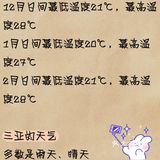 12月日间最低温度21℃，最高温
度28℃
1月日间最低温度20℃，最高温
度27℃
2月日间最低温度21℃，最高温
度28℃
三亚的天气
多数是雨天、晴天